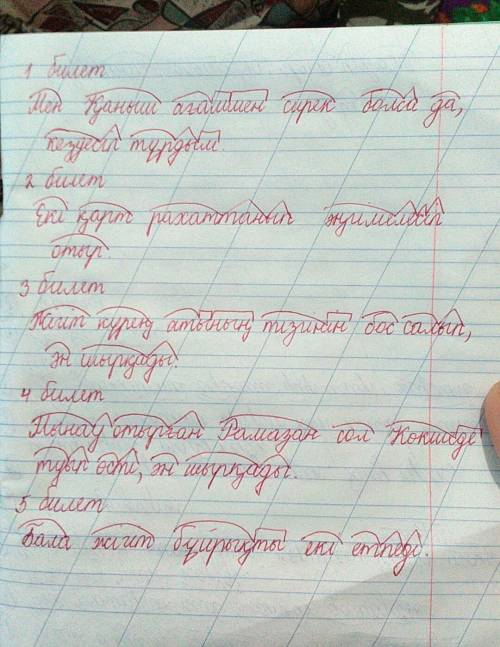 1 билет
Мен Қаныш ағаммен сирек болса да,
кездесіп тұрдым.
2 билет
Екі қарт рахаттанып әңгімелесіп
отыр.
3 билет
Жігіт күрең атының тізгінін бос салып,
ән шырқады.
4 билет
Мынау отырған Рамазан сол Көкшеде
туып өсті, ән шырқады.
5 билет
Бала жігіт бұйрықты екі етпеді.